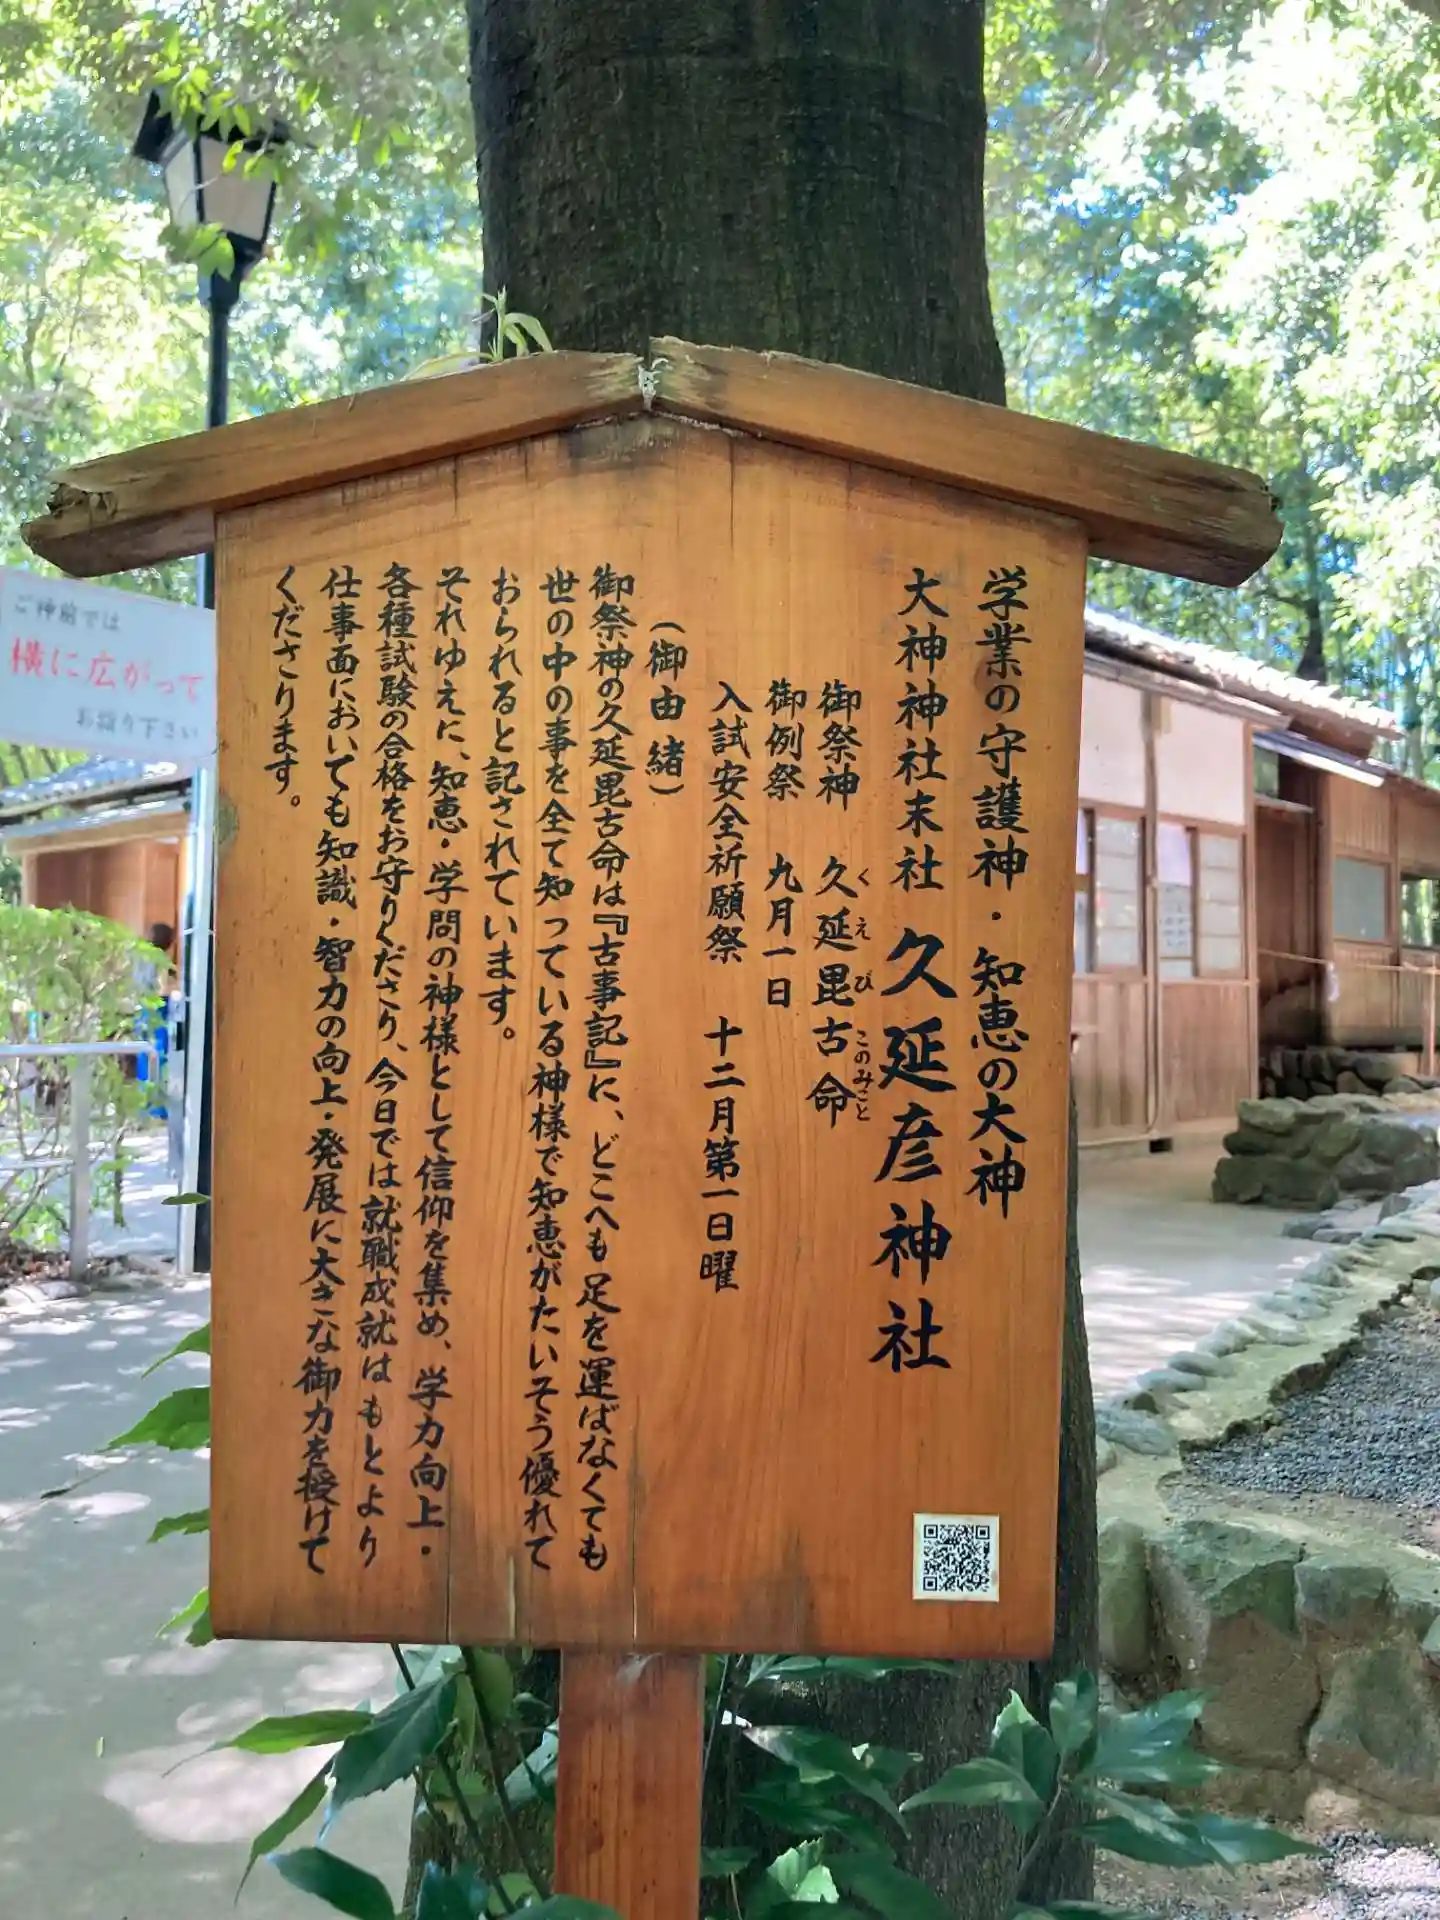 学業の守護神・知恵の大神
大神神社末社 久延彦神社
御祭神 久延毘古命
くえびこのみこと
御例祭 九月一日
入試安全祈願祭 十二月第一日曜
(御由緒)
御祭神の久延毘古命は『古事記』に、どこへも足を運ばなくても
世の中の事を全て知っている神様で知恵がたいそう優れて
おられると記されています。
それゆえに、知恵・学問の神様として信仰を集め、学力向上・
各種試験の合格をお守りくださり、今日では就職成就はもとより
仕事面においても知識・智力の向上・発展に大きな御力を授けて
くださります。
ご神前では
横に広がって
お詣り下さい